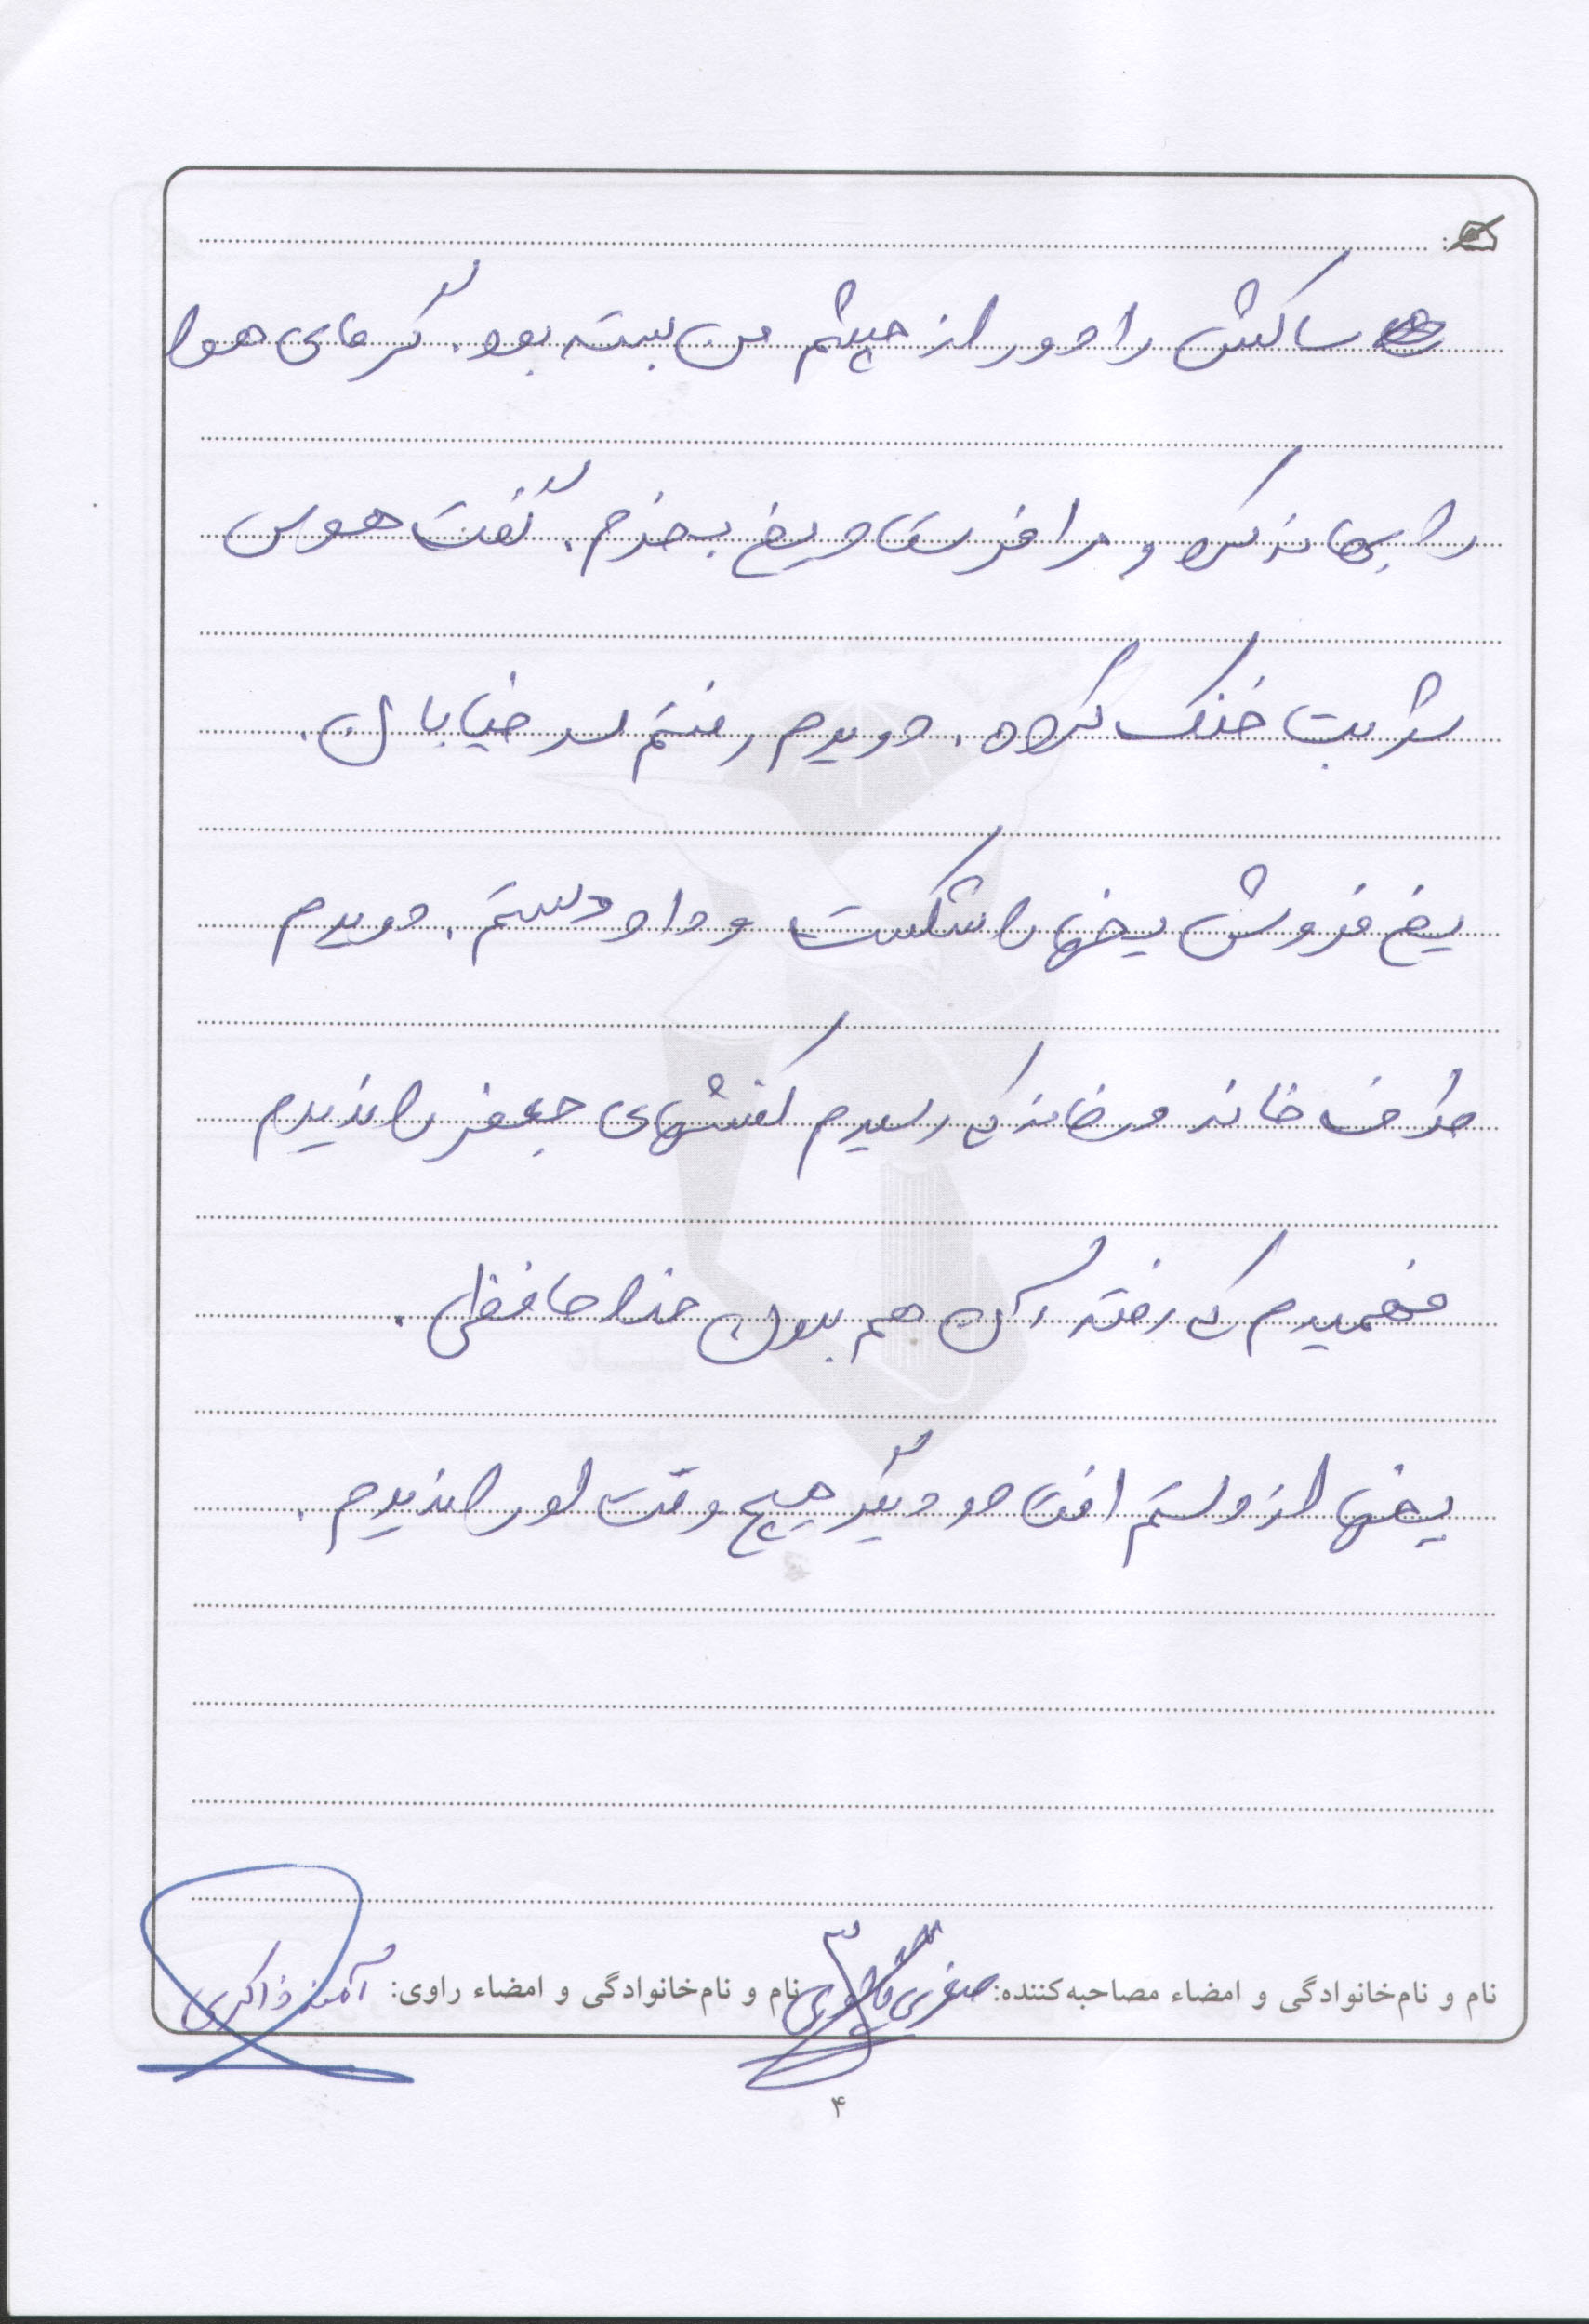 ساکش را دور از چشم من بسته بود. گرمای هوا
را بهانه کرد و مرا فرستاد یخ بخرم. گفت هوس
شربت خنک کرده. دویدم رفتم سر خیابان.
یخ فروش یخها را شکست و داد دستم. دویدم
طرف خانه و به خانه که رسیدم کفشهای جعفر را ندیدم
فهمیدم که رفته آن هم بدون خداحافظی.
یخها از دستم افتاد و دیگر هیچ وقت او را ندیدم.
نام و نام‌خانوادگی و امضاء مصاحبه‌کننده: صغری نام و نام‌خانوادگی و امضاء راوی: آمنه ذاکری
۴